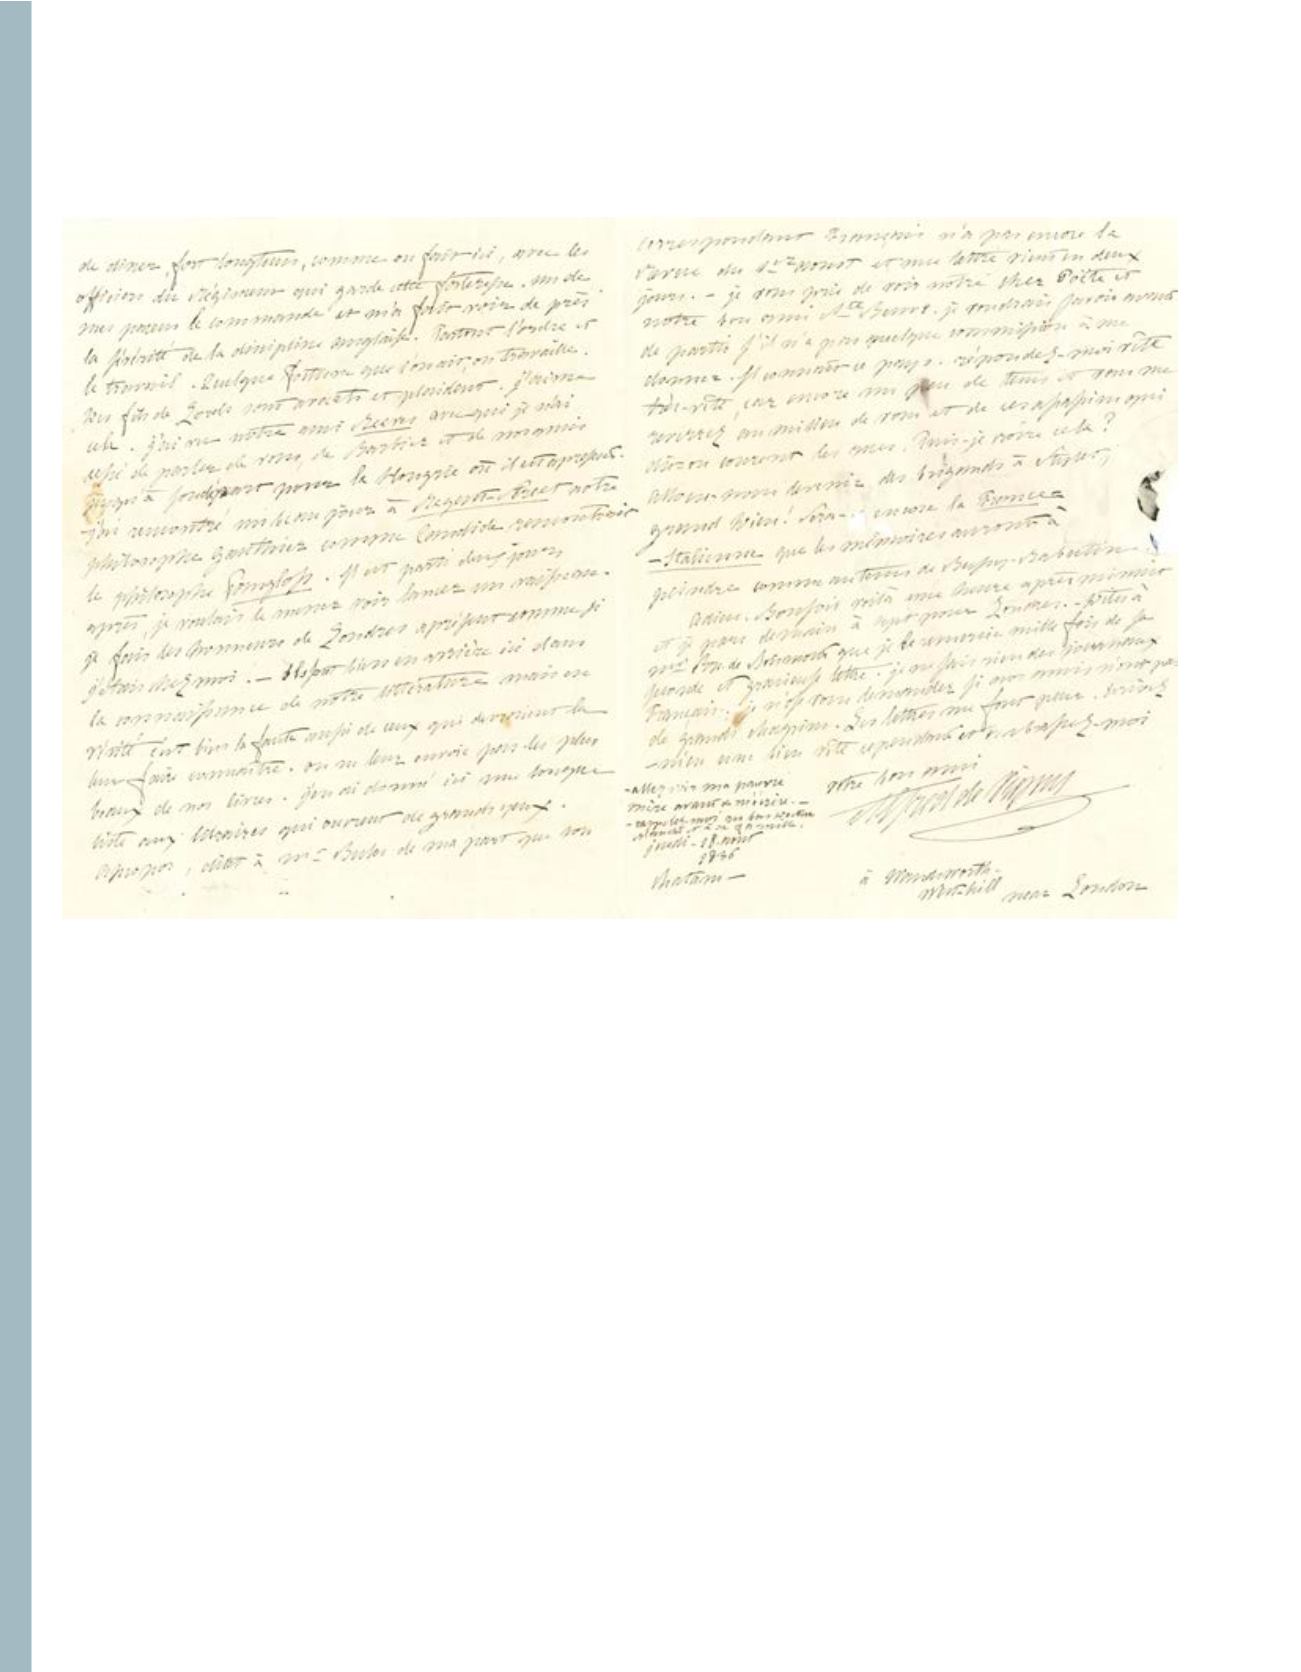 de diner, fort longtems, comme on fait ici, avec les
officiers du Régiment qui garde cette forteresse. un de
mes parens le commande et m'a fait voir de près
la sévérité de la discipline anglaise. Partout l'ordre et
le travail. Quelque fortune que l'on ait, on travaille.
les fils de Lords sont avocats et plaident. j'aime
cela. j'ai vu notre ami Reeves avec qui je n'ai
cessé de parler de vous, de Barbier et de nos amis
jusqu'à son départ pour la Hongrie où il est à présent.
j'ai rencontré un beau jour à Regent-Street notre
philosophe Gauthier comme Candide rencontrait
le philosophe Pangloss. Il est parti deux jours
après, je voulais le mener voir lancer un vaisseau.
je fais les honneurs de Londres à présent comme si
j'étais chez moi. — bien en arrière ici dans
la connaissance de notre littérature mais en
vérité c'est bien la faute aussi de ceux qui devroient la
leur faire connaître. on ne leur envoie pas les plus
beaux de nos livres. j'en ai donné ici une longue
liste aux libraires qui ouvrent de grands yeux.
apropos, dites à Mr Buloz de ma part que son
correspondant Français n'a pas encore la
revue du 1er aoust et une lettre vient en deux
jours. - je vous prie de voir notre cher Poëte et
notre bon ami Ste Beuve. je voudrais savoir avant
de partir s'il n'a pas quelque commission à me
donner. Il connait ce pays. répondez-moi vîte
très-vîte, car encore un peu de tems et vous me
reverrez au milieu de vous et de ces assassins qui
dit-on courent les rues. Puis-je croire cela?
allons-nous devenir des brigands à Stylet,
grand Dieu! encore la France
-Italienne que les mémoires auront à
peindre comme au tems de Bussy-Rabutin.
adieu. Bonsoir voilà une heure après minuit
et je pars demain à sept pour Londres. - Dites à
que je le remercie mille fois de sa
seconde et gracieuse lettre. je ne sais rien des journaux
Français. je n'ose vous demander si nos amis n'ont pas
de grands chagrins. Les lettres me font peur. Ecrivez
-m'en une bien vîte cependant et embrassez-moi
votre bon ami
Alfred de Vigny
- allez voir ma pauvre
mère avant de m'écrire. -
jeudi - 18 aout
1836
Chatam —
à Wandsworth.
near London